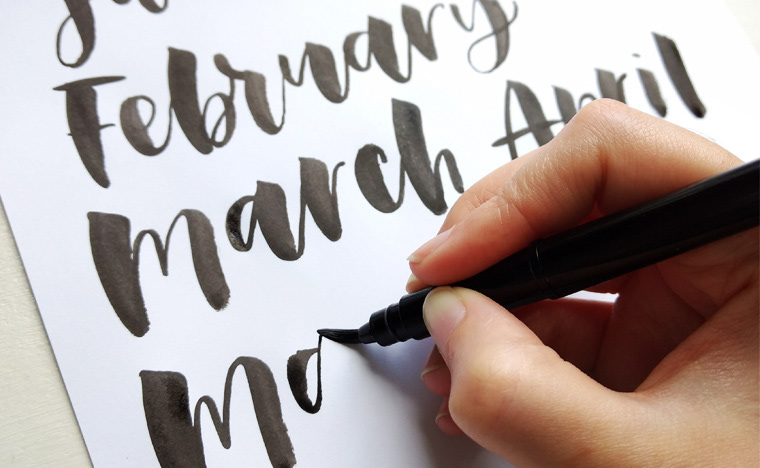 February
March April
Ma